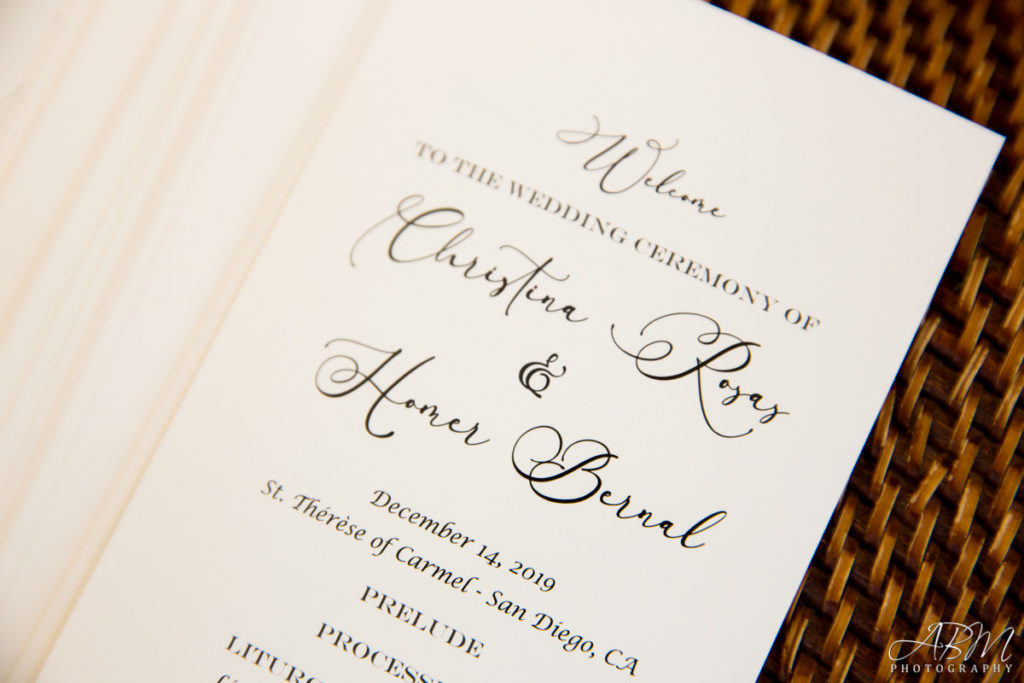 Welcome
TO THE WEDDING CEREMONY OF
Christina Rosas
&
Homer Bernal
December 14, 2019
St. Thérèse of Carmel - San Diego, CA
PRELUDE
PROCESS
LITUR
ABM
PHOTOGRAPHY